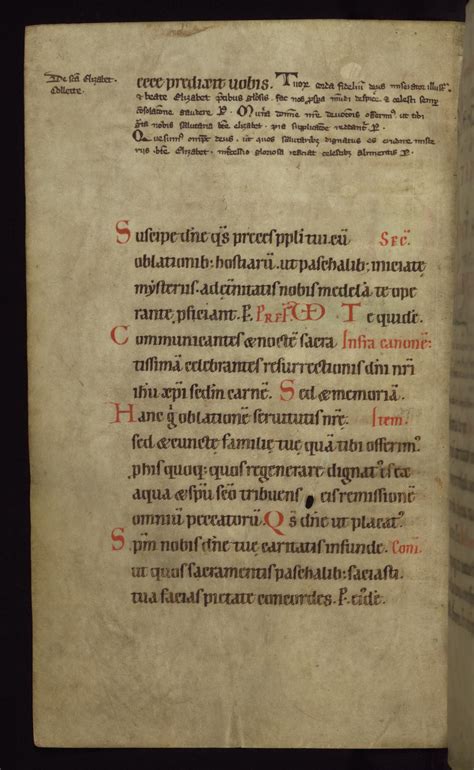 De scā Elizabet.
Collecte
ecce predixit vobis. Tuox corda fidelium deus miserator illust̄
& beate Elizabet p̄cibus gl̄osis fac nos p̄spa mūdi despice̅ & celesti semp
cōsolatōne gaudere P.
nobis salutaria bēe elizabet
Quesumus omp̄s deus ut quos salutarib;
bēe Elizabet
Suscipe dn̄e q̄s preces ppli tui cū Sec̄.
oblationib; hostiarū. ut paschalib; iniciate
mysteriis. ad eternitatis nobis medelā te ope
rante, pficiant. P. PREF. Te quidē.
Communicantes & noctē sacra Infra canonē:
tissimā celebrantes resurrectionis dn̄i nr̄i
ihū xp̄i scdm carnē. Sed & memoriā.
Hanc g̊ oblationē seruitutis nr̄e. Item.
sed & cuncte familie tue quā tibi offerim᷒
p his quoq; quos regenerare dignat᷒ es ex
aqua & sp̄u scō tribuens eis remissionē
omniū peccatorū. Q̄s dn̄e ut placat᷒
Sp̄m nobis dn̄e tue caritatis infunde. Com̄.
ut quos sacramentis paschalib; saciasti.
tua facias pietate concordes. P. eidē.